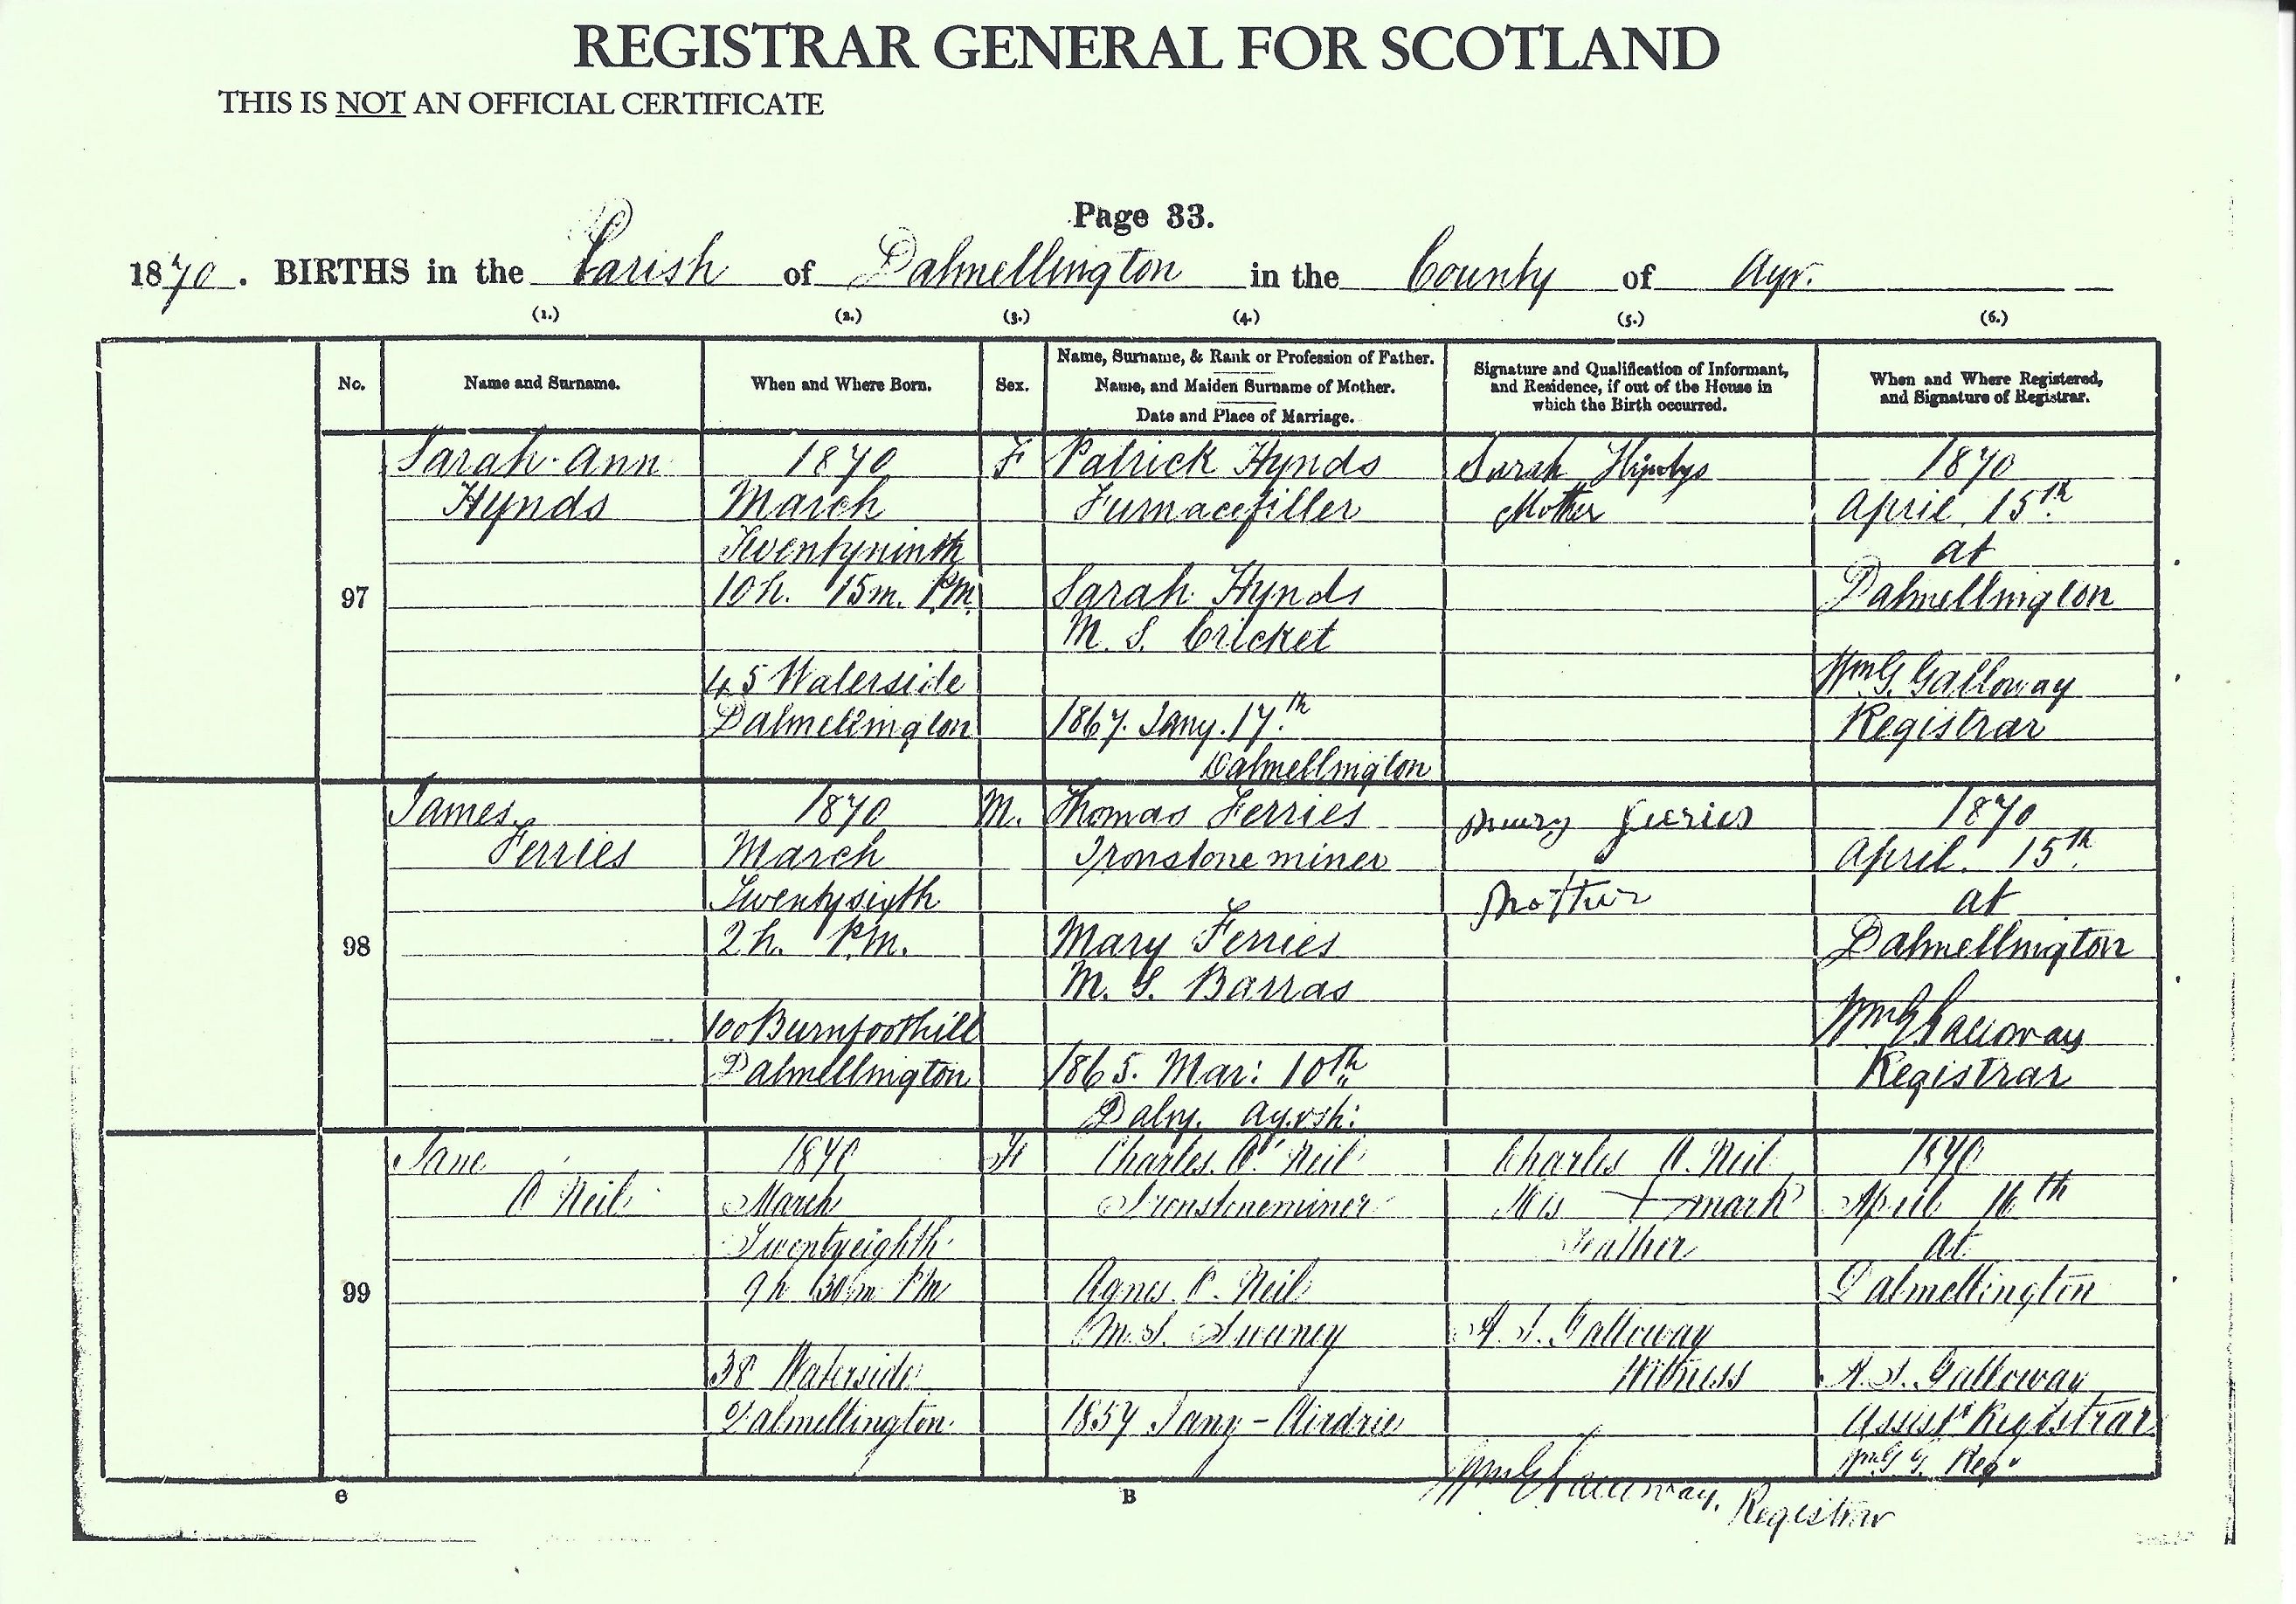 REGISTRAR GENERAL FOR SCOTLAND
THIS IS NOT AN OFFICIAL CERTIFICATE
Page 33.
1870. BIRTHS in the Parish of Dalmellington in the County of Ayr.
(1.) (2.) (3.) (4.) (5.) (6.)
No.
Name and Surname.
When and Where Born.
Sex.
Name, Surname, & Rank or Profession of Father.
Name, and Maiden Surname of Mother.
Date and Place of Marriage.
Signature and Qualification of Informant,
and Residence, if out of the House in
which the Birth occurred.
When and Where Registered,
and Signature of Registrar.
97
Sarah Ann
Hynds
1870
March
Twentyninth
10h. 15m. P.M.
45 Waterside
Dalmellington
F
Patrick Hynds
Furnacefiller
Sarah Hynds
M. S. Cricket
1867. Jany. 17th
Dalmellington
Sarah
Mother
1870
April 15th
at
Dalmellington
Wm G. Galloway
Registrar
98
James
Ferries
1870
March
Twentysixth
2h. P.M.
100 Burnfoothill
Dalmellington
M.
Thomas Ferries
Ironstone miner
Mary Ferries
M. S. Barras
1865. Mar: 10th
Dalry. Ayrsh:
Mother
1870
April. 15th
at
Dalmellington
Wm G Galloway
Registrar
99
Jane
O'Neil
1870
March
Twentyeighth
9h 30m PM
38 Waterside
Dalmellington
F
Charles O'Neil
Ironstoneminer
Agnes O'Neil
M.S. Sweeney
1857 Jany - Airdrie
Charles O'Neil
His + mark
Father
A. S. Galloway
Witness
1870
April 16th
at
Dalmellington
A. S. Galloway
Assist Registrar
Wm G. G. Regr
Wm G Galloway, Registrar
B